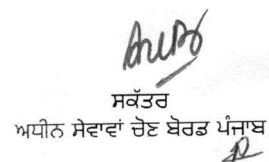 ਸਕੱਤਰ
ਅਧੀਨ ਸੇਵਾਵਾਂ ਚੋਣ ਬੋਰਡ ਪੰਜਾਬ